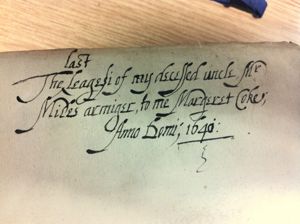 last
The leagesi of my decessed uncle Mr
Miles armiger, to me Margeret Coke,
Anno Domi, 1640: